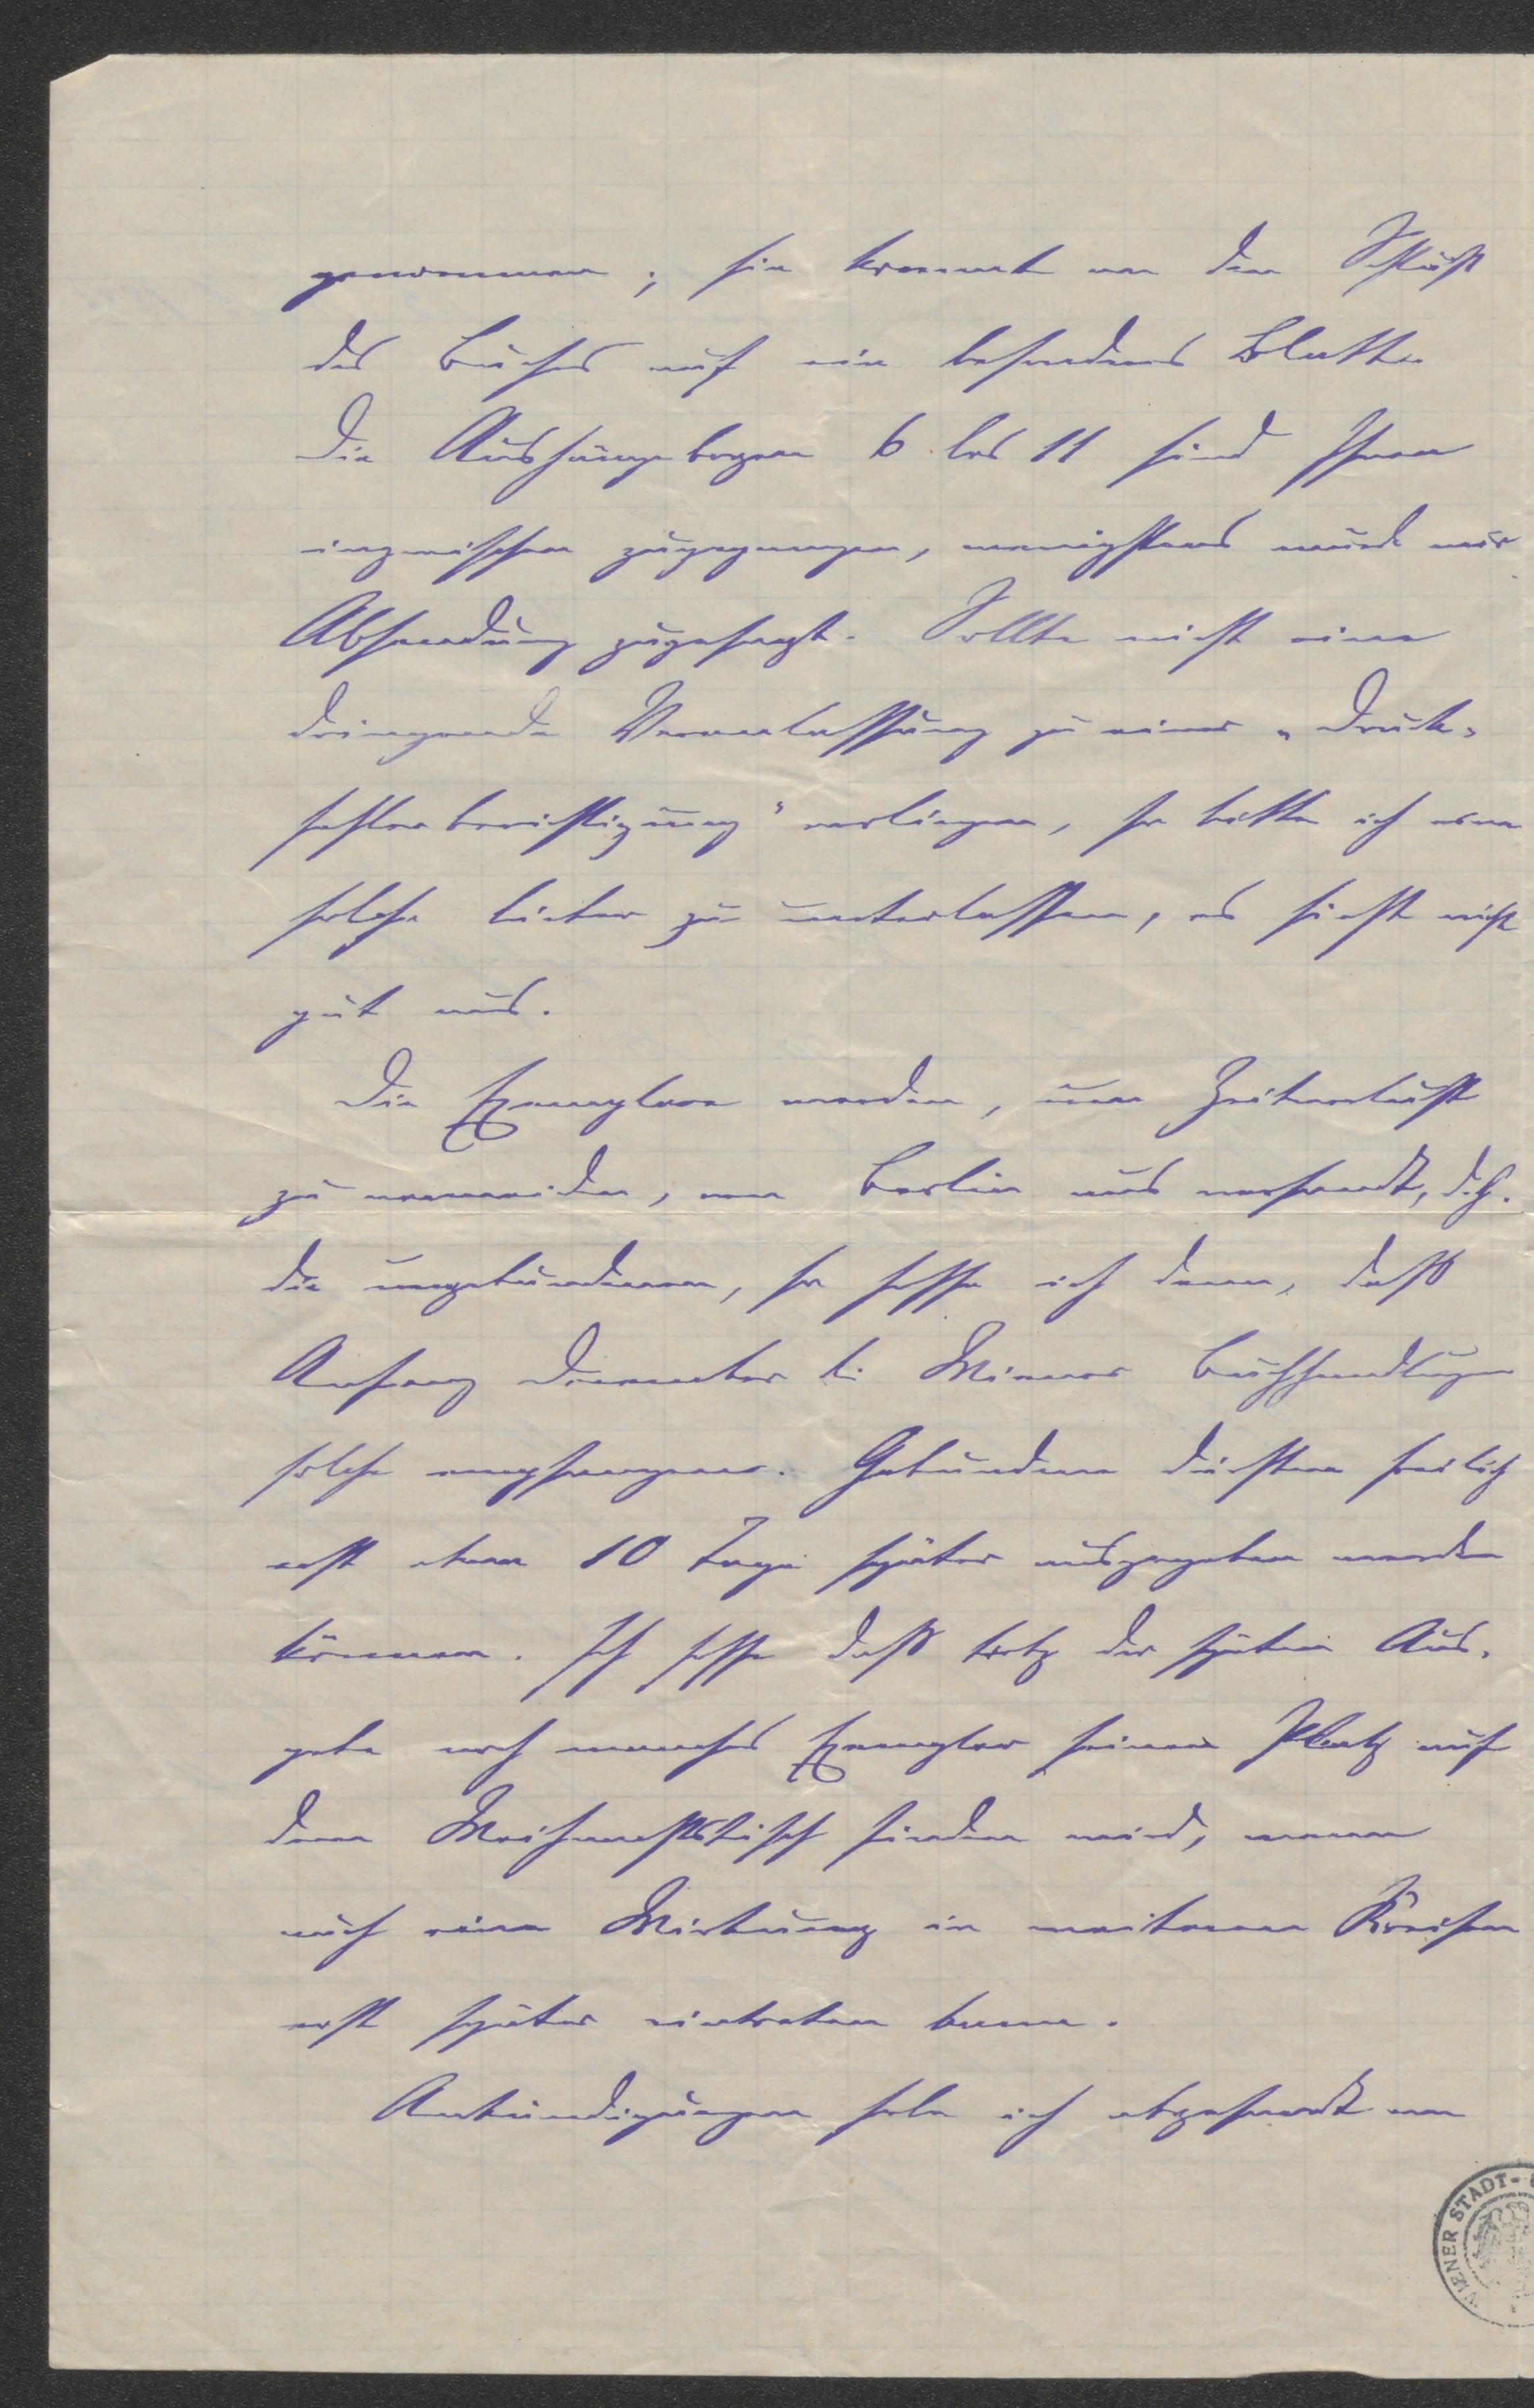 genommen; sie kommt an den Schluß
des Buches auf ein besonderes Blatt.
Die Aushängebogen 6 bis 11 sind Ihnen
inzwischen zugegangen, wenigstens wurde mir
Absendung zugesagt. Sollte nicht eine
dringende Veranlassung zu einer „Druck-
fehlerberichtigung“ vorliegen, so bitte ich eine
solche lieber zu unterlassen, es sieht nicht
gut aus.
Die Exemplare werden, um Zeitverlust
zu vermeiden, von Berlin aus versandt, d.h.
die ungebundenen, so hoffe ich denn, daß
Anfang Dezember die Wiener Buchhandlungen
solche empfangen. Gebundene dürften freilich
erst etwa 10 Tage später ausgegeben werden
können. Ich hoffe daß trotz der späten Aus-
gabe noch manches Exemplar seinen Platz auf
dem Weihnachtstisch finden wird, wenn
auch eine Wirkung in weiteren Kreisen
erst später eintreten kann.
Ankündigungen habe ich abgesandt an
WIENER STADT-